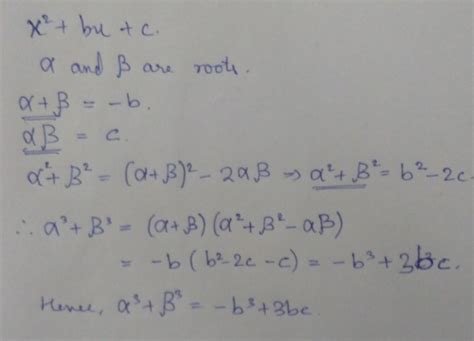 x² + bx + c.
α and β are roots.
α + β = -b.
αβ = c.
α² + β² = (α+β)² - 2αβ ⇒ α² + β² = b² - 2c.
∴ α³ + β³ = (α+β) (α² + β² - αβ)
= -b (b² - 2c - c) = -b³ + 3bc.
Hence, α³ + β³ = -b³ + 3bc.